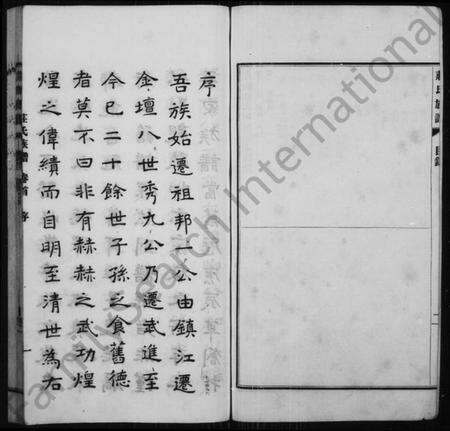 序
吾族始遷祖邦一公由鎮江遷
金壇八世秀九公乃遷武進至
今已二十餘世子孫之食舊德
者莫不曰非有赫赫之武功煌
煌之偉績而自明至清世為右
莊氏族譜 卷首 序 一
莊氏族譜 目錄
FamilySearch International